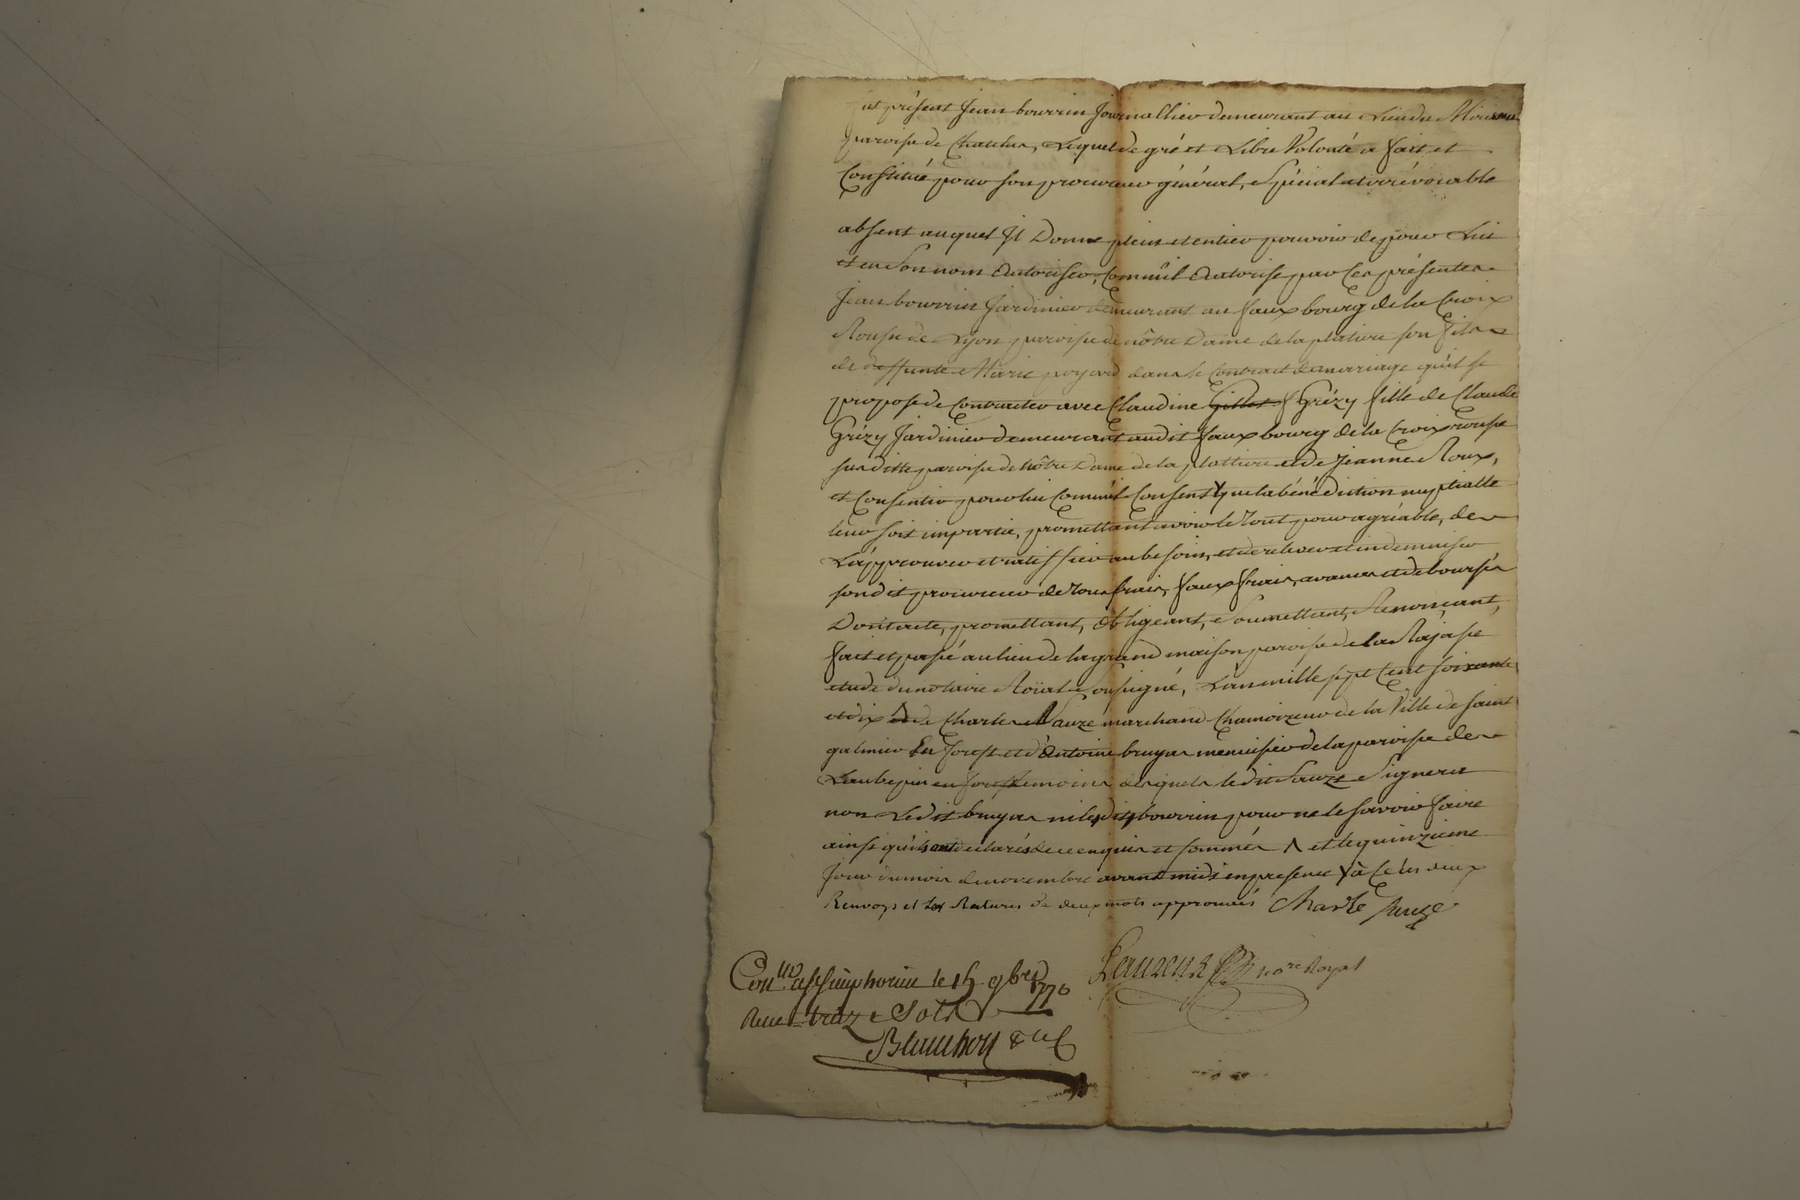 fut présent Jean bourrin Journallier demeurant au Lieu du
paroisse de Chatelus, Lequel de gré et Libre Volonté a fait et
Constitué pour son procureur général, Spécial et irrévocable
absent auquel Il Donne plein et entier pouvoir de pour Lui
et en Son nom Autoriser, Comm'il Autorise par Ces présentes
Jean bourrin Jardinier demeurant au faux bourg de la Croix
Rousse de Lyon paroisse de nôtre Dame de la platiere son fils
de deffunte Marie poyard dans le Contract de mariage qu'il se
propose de Contracter avec Claudine Gillet Grézy fille de Claude
Grézy Jardinier demeurant audit faux bourg de la Croix rousse
susditte paroisse de nôtre Dame de la plattiere et de Jeanne Roux,
et Consentir pour lui Comm'il Consent que la bénédiction nuptialle
leur soit impartie, promettant avoir le Tout pour agréable, de
L'approuver et ratiffier au besoin, et de relever et indemniser
sondit procureur de Tous frais, faux frais, avances et debourses
Dont acte, promettant, Obligeant, Soumettant, Renonçant,
fait et passé au lieu de la grand maison paroisse de la Rajasse
etude du notaire Roïal Soussigné, L'an mille sept Cent soixante
et dix de Charles Sauze marchand Chamoizeur de la Ville de saint
galmier En forest et d'Antoine bruyas menuisier de la paroisse de
Laubepin en forest temoins desquels ledit Sauze Signera
non Ledit bruyas ni ledit bourrin pour ne le savoir faire
ainsi qu'ils ont declarés de ce enquis et sommés et le quinzieme
Jour du mois de novembre avant midi en presence à Ce les deux
Renvoys et Les Ratures de deux mots approuvés Charle Sauze
Laurent no.re Royal
Con.llé a St Simphorien le 15 9bre 1770
Reçu treize Sols
Blanchon